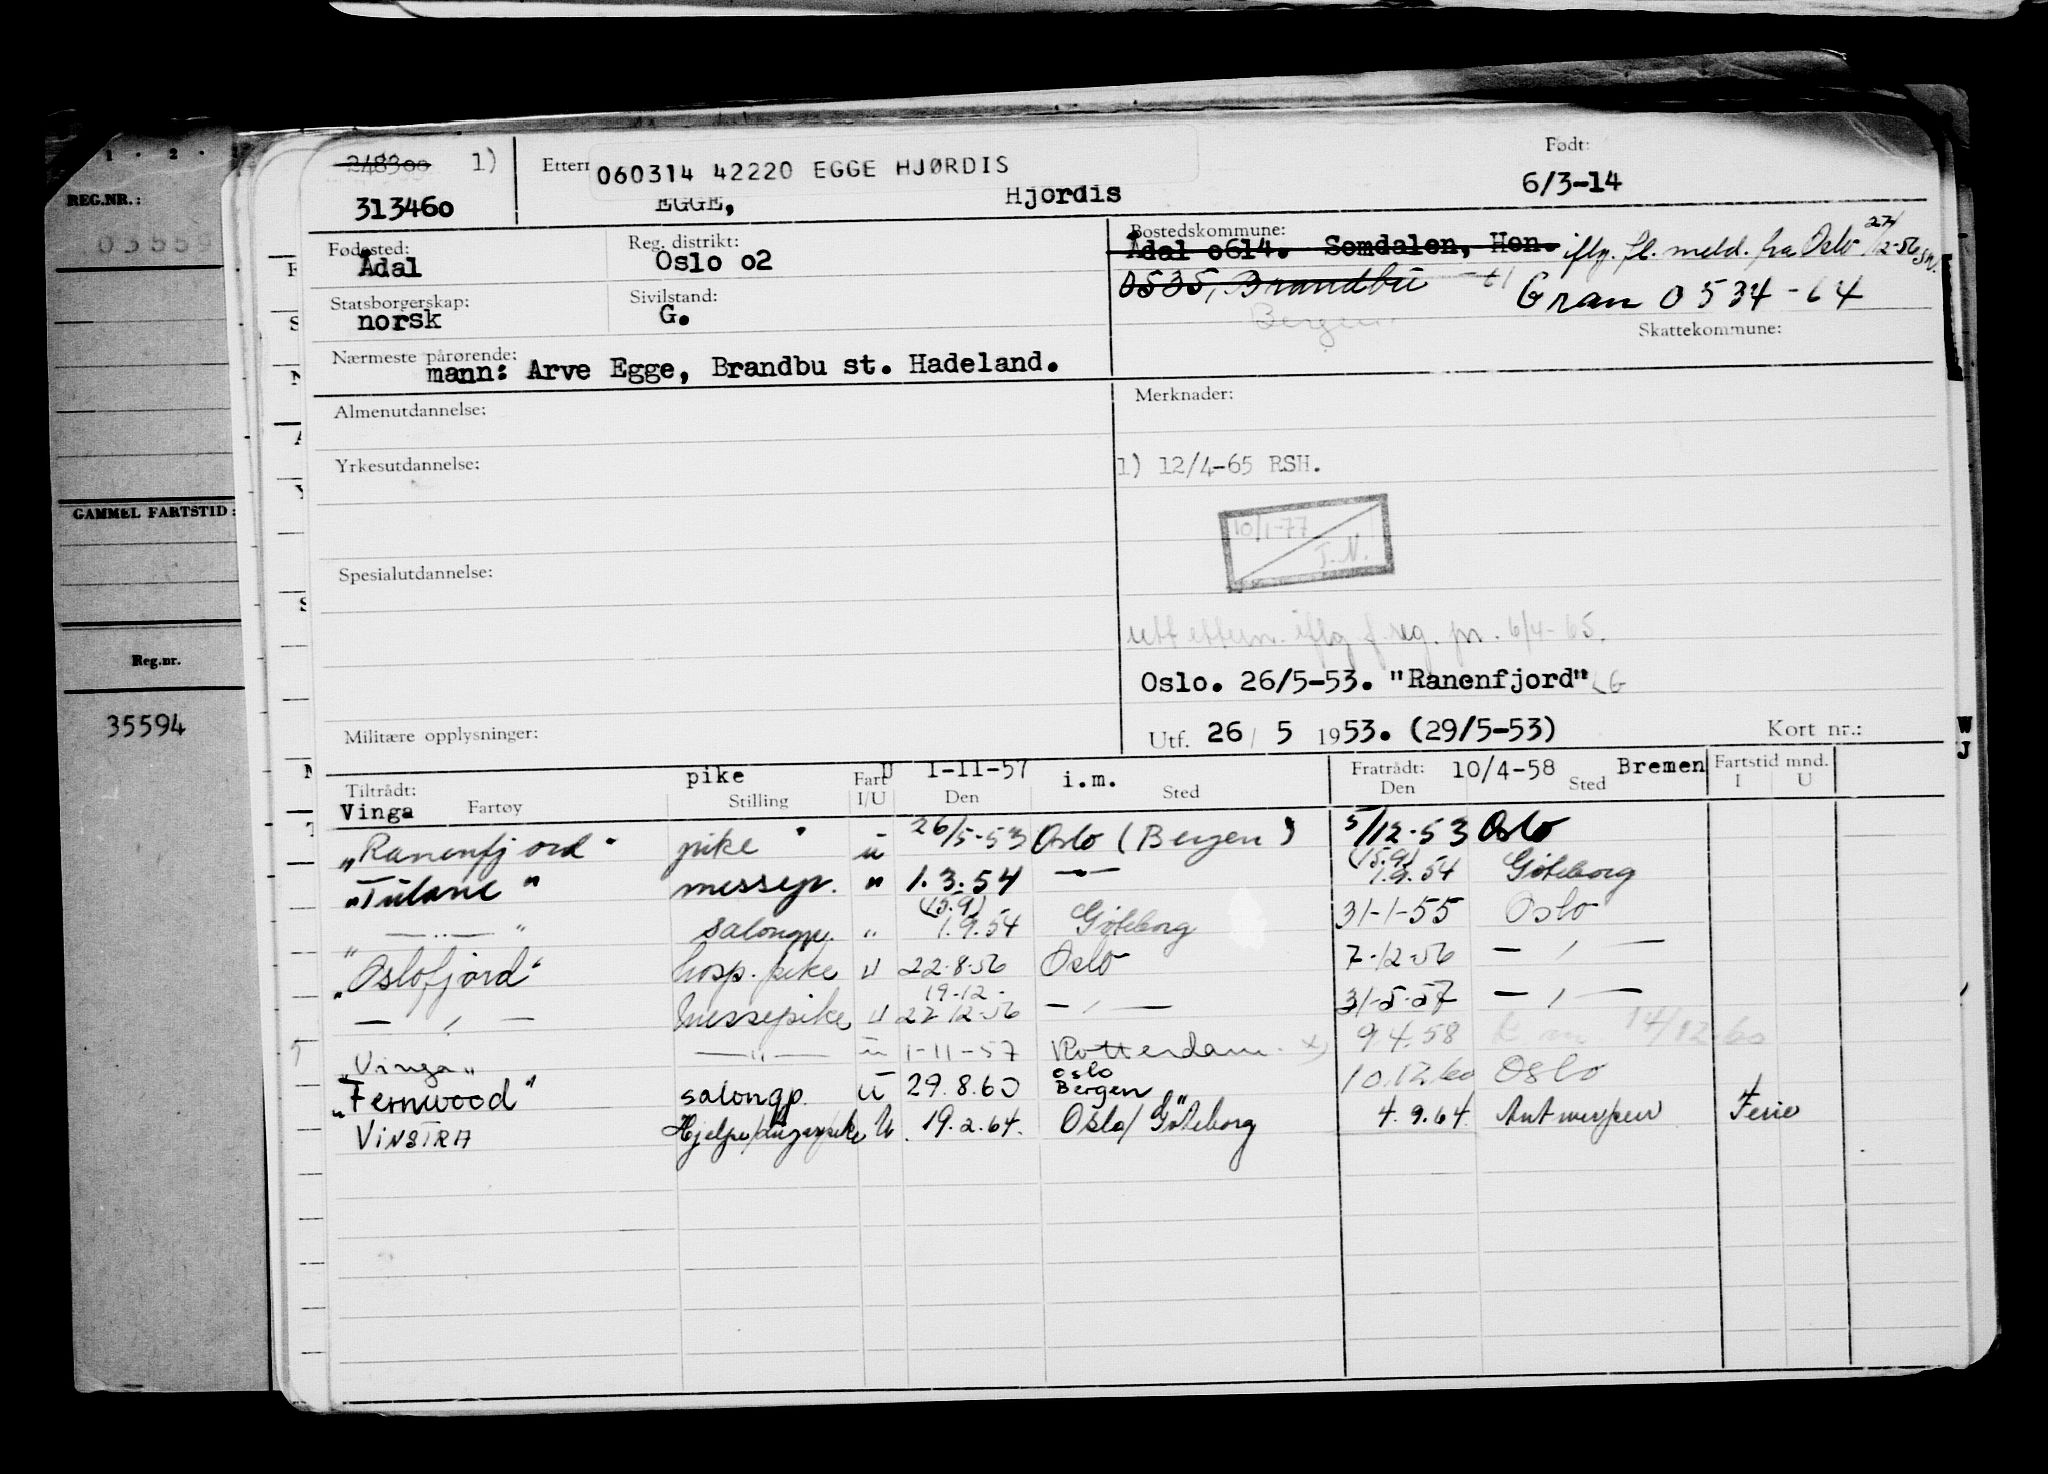 1 . 2 .
REG.NR.:
03559
GAMMEL FARTSTID:
Reg.nr.
35594
248300 1)
313460
Ettern
060314 42220 EGGE HJØRDIS
EGGE, Hjordis
Født:
6/3-14
Fødested:
Ådal
Reg. distrikt:
Oslo o2
Bostedskommune:
Ådal o614. Somdalen, Hen. iflg. fl. meld. fra Oslo 27/12-56
0535, Brandbu
Gran 0534-64
Bergen
Statsborgerskap:
norsk
Sivilstand:
G.
Skattekommune:
Nærmeste pårørende:
mann: Arve Egge, Brandbu st. Hadeland.
Almenutdannelse:
Merknader:
Yrkesutdannelse:
1) 12/4-65 RSH.
10/1-77
T.N.
Spesialutdannelse:
iflg f.reg. pr. 6/4-65.
Oslo. 26/5-53. "Ranenfjord"
Militære opplysninger:
Utf. 26/ 5 1953. (29/5-53)
Kort nr.:
Tiltrådt: Fartøy Stilling Fart I/U Den Sted Fratrådt: Den Sted Fartstid mnd. I U
Vinga pike U 1-11-57 i.m. 10/4-58 Bremen
"Ranenfjord" pike u 26/5-53 Oslo (Bergen) 5/12-53 Oslo
"Tulane" messep. " 1.3.54 —"— (15.9) 1.9.54 Göteborg
"—..—" salongp. " (15.9) 1.9.54 Göteborg 31-1-55 Oslo
"Oslofjord" hosp. pike u 22-8-56 Oslo 7-12-56 — , —
— , — messepike u 19-12- 27 12-56 — , — 31-5-57 — , —
"Vinga" —"— u 1-11-57 Rotterdam x) 9.4.58 14/12.60
"Fernwood" salongp. u 29.8.60 Oslo Bergen 10.12.60 Oslo
VINSTRA Hjelpe/lugarpike U. 19.2.64. Oslo/Göteborg 4.9.64 Antwerpen Ferie
W
J